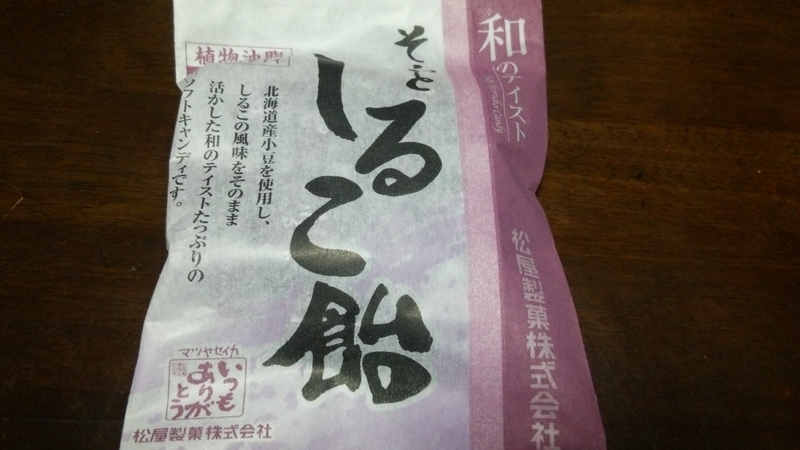 和のテイスト
松屋製菓株式会社
そふと
しるこ飴
植物油脂
北海道産小豆を使用し、
しるこの風味をそのまま
活かした和のテイストたっぷりの
ソフトキャンディです。
マツヤセイカ
いつも
ありが
とう
松屋製菓株式会社